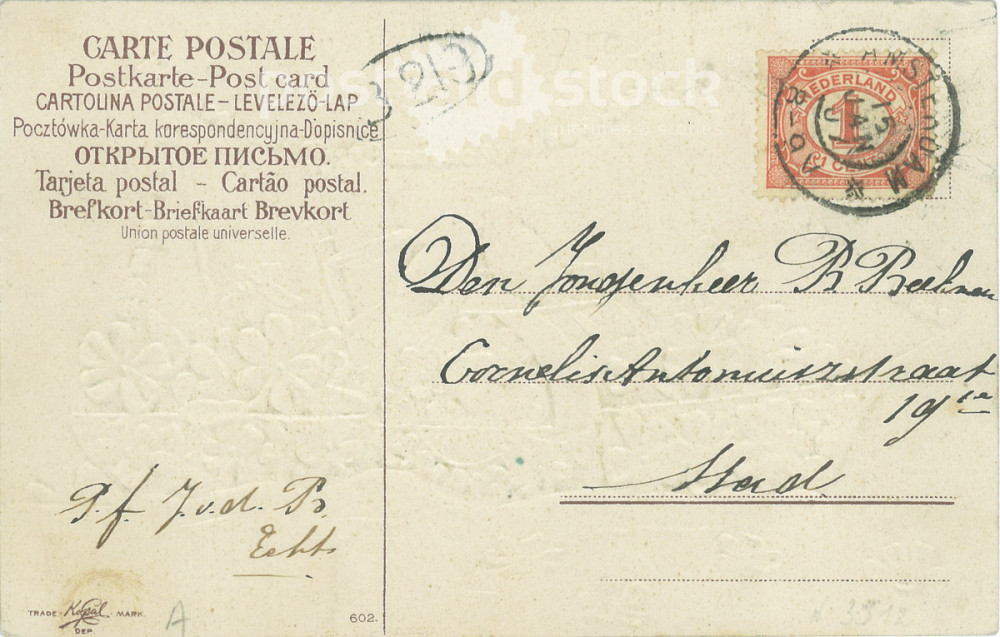 CARTE POSTALE
Postkarte-Post card
CARTOLINA POSTALE - LEVELEZÖ-LAP
Pocztówka-Karta korespondencyjna-Dopisnice
ОТКРЫТОЕ ПИСЬМО.
Tarjeta postal - Cartão postal.
Brefkort-Briefkaart Brevkort
Union postale universelle.
stock
NEDERLAND
1
1 CENT
AMSTERDAM
Den Jongenheer B
Cornelis Antoniuszstraat
19
Stad
P.f. J.v.d. B.
TRADE MARK.
DEP.
602.
A